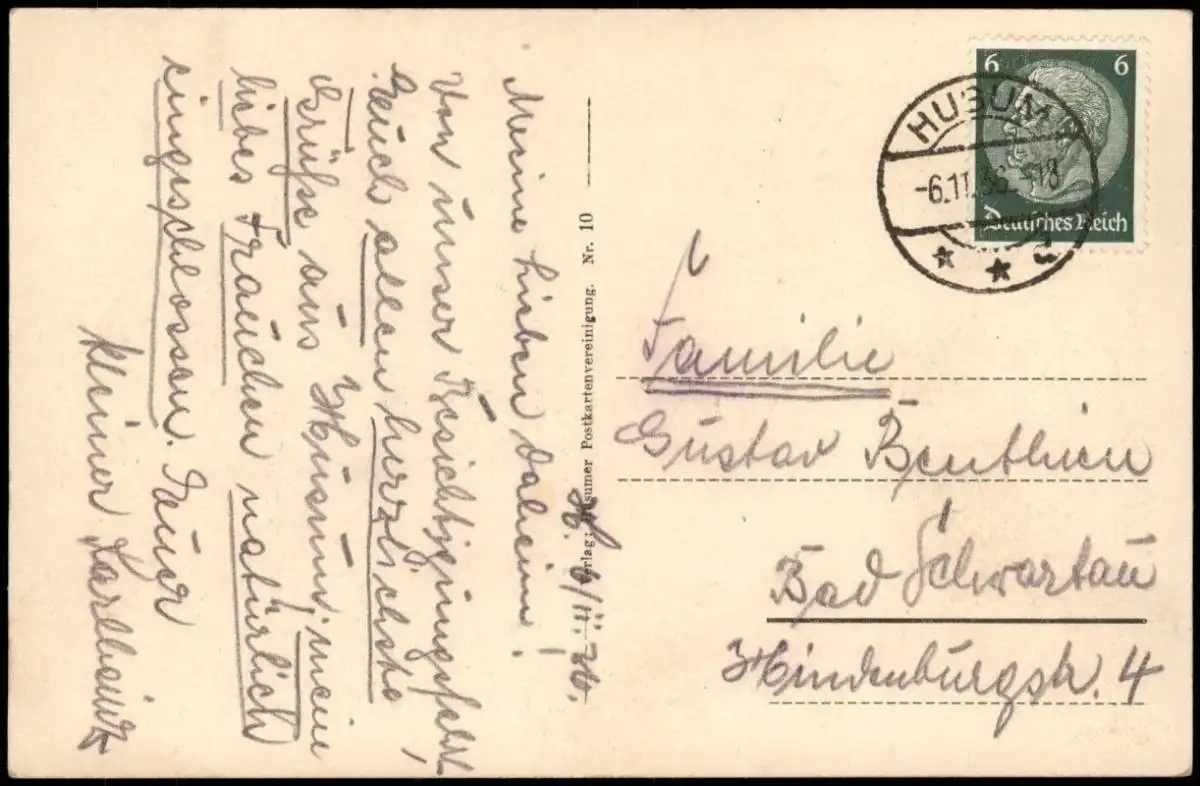 H. 6/11. 36.
Meine lieben daheim!
Von unser Besichtigungsfahrt
Euch allen herzlichste
Grüße aus Husum, mein
liebes Frauchen natürlich
eingeschlossen. Euer
kleiner Karlheinz
Verlag: Husumer Postkartenvereinigung. Nr. 10
6 6
Deutsches Reich
HUSUM
-6.11.36.-18
a
Familie
Gustav Benthien
Bad Schwartau
Hindenburgstr. 4